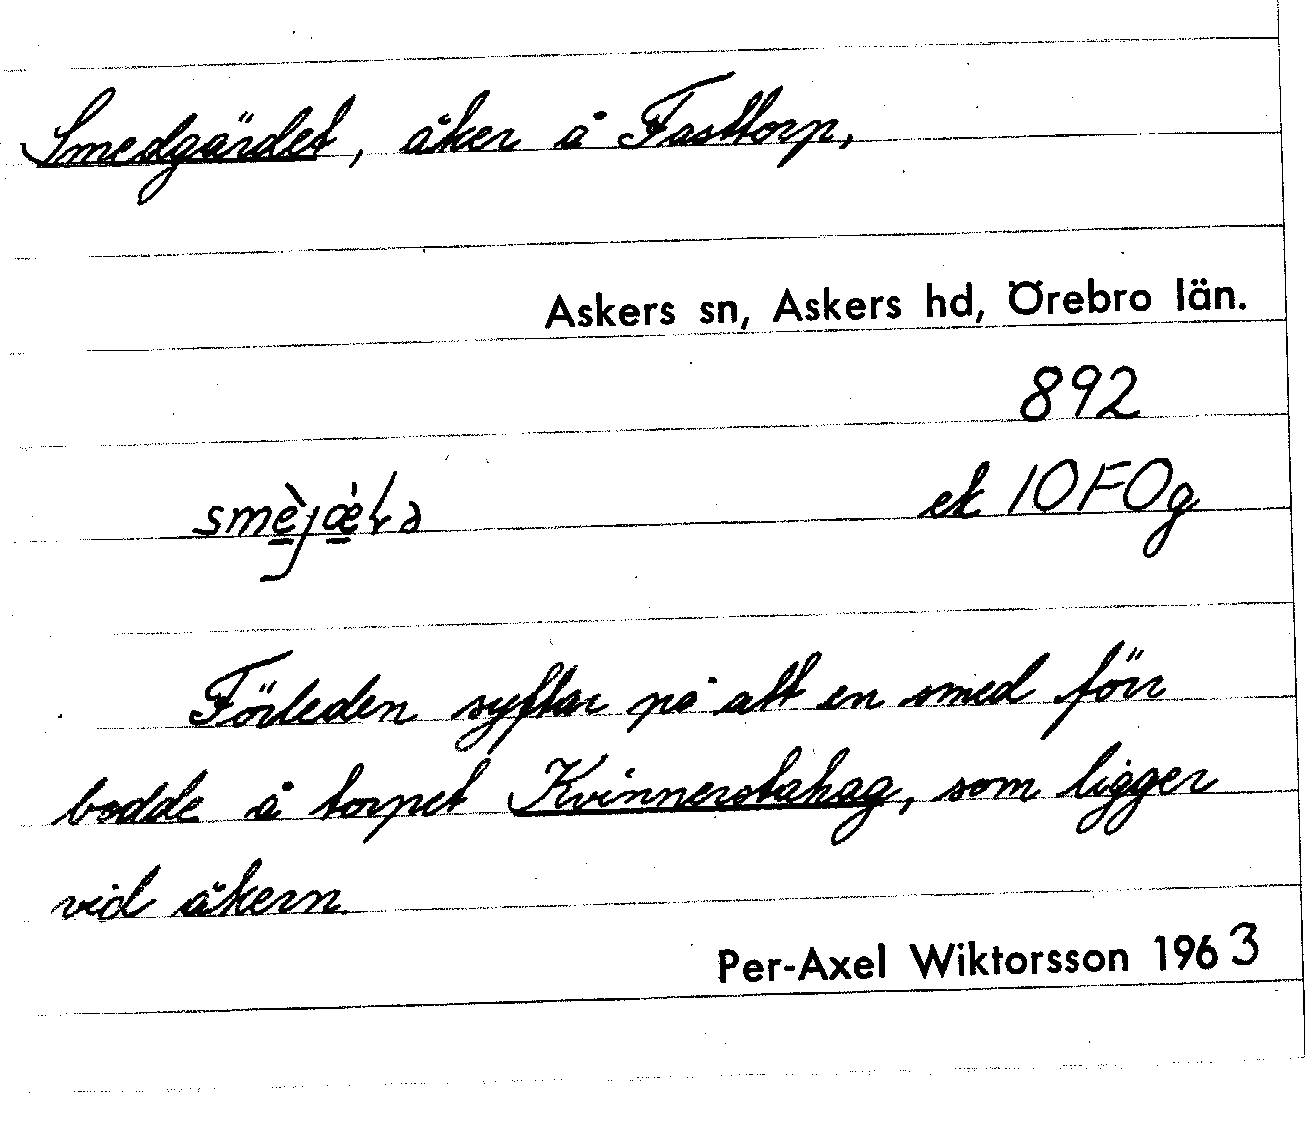 Smedgärdet, åker å Fasttorp,
Askers sn, Askers hd, Örebro län.
892
ek 10F0g
Förleden syftar på att en smed förr
bodde å torpet Kvinnerstahag, som ligger
vid åkern.
Per-Axel Wiktorsson 1963